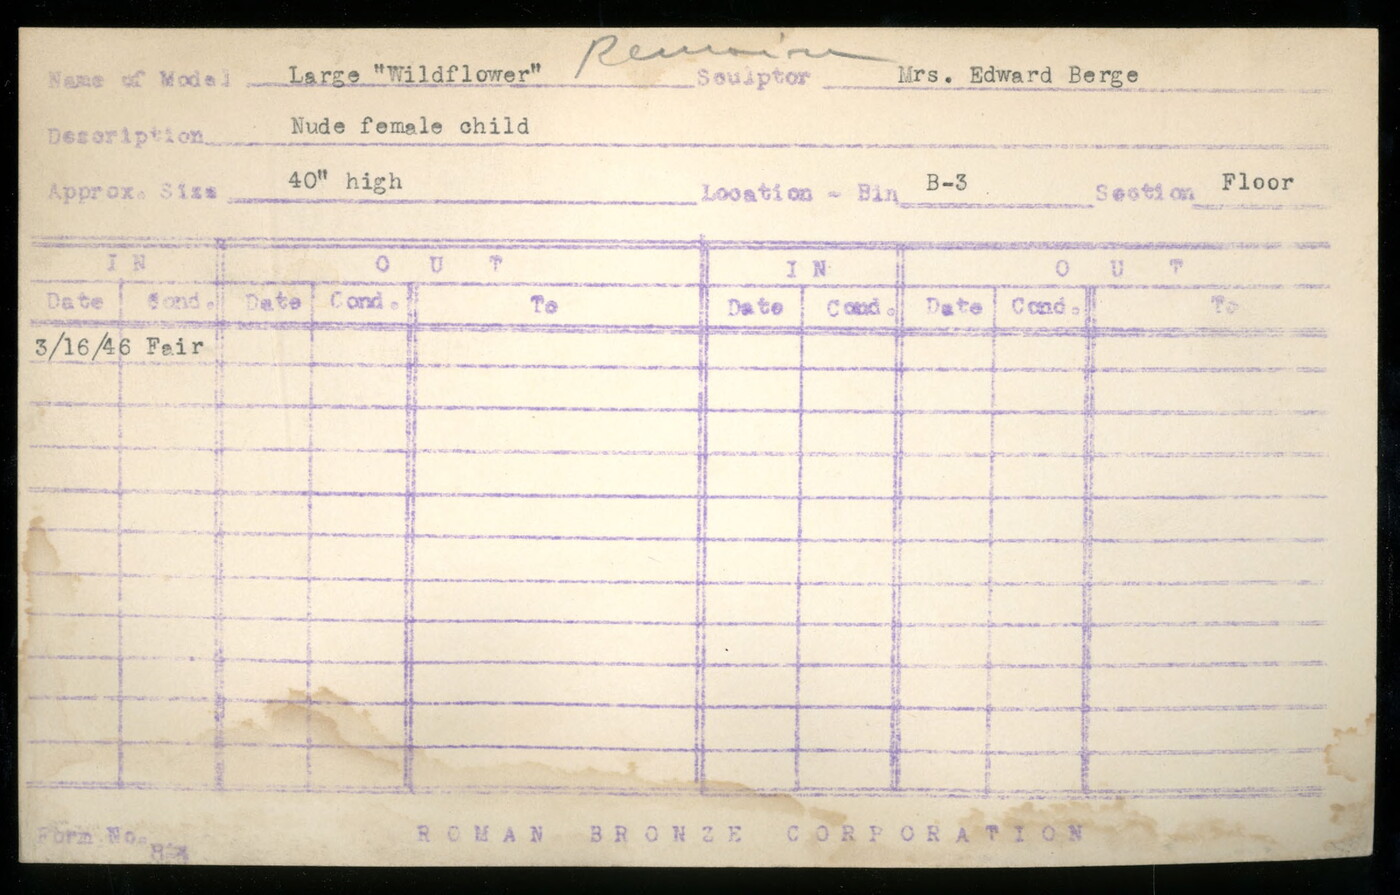 Remain
Name of Model Large "Wildflower" Sculptor Mrs. Edward Berge
Description Nude female child
Approx. Size 40" high Location - Bin B-3 Section Floor
IN OUT IN OUT
Date Cond. Date Cond. To Date Cond. Date Cond. To
3/16/46 Fair
Form No.
ROMAN BRONZE CORPORATION